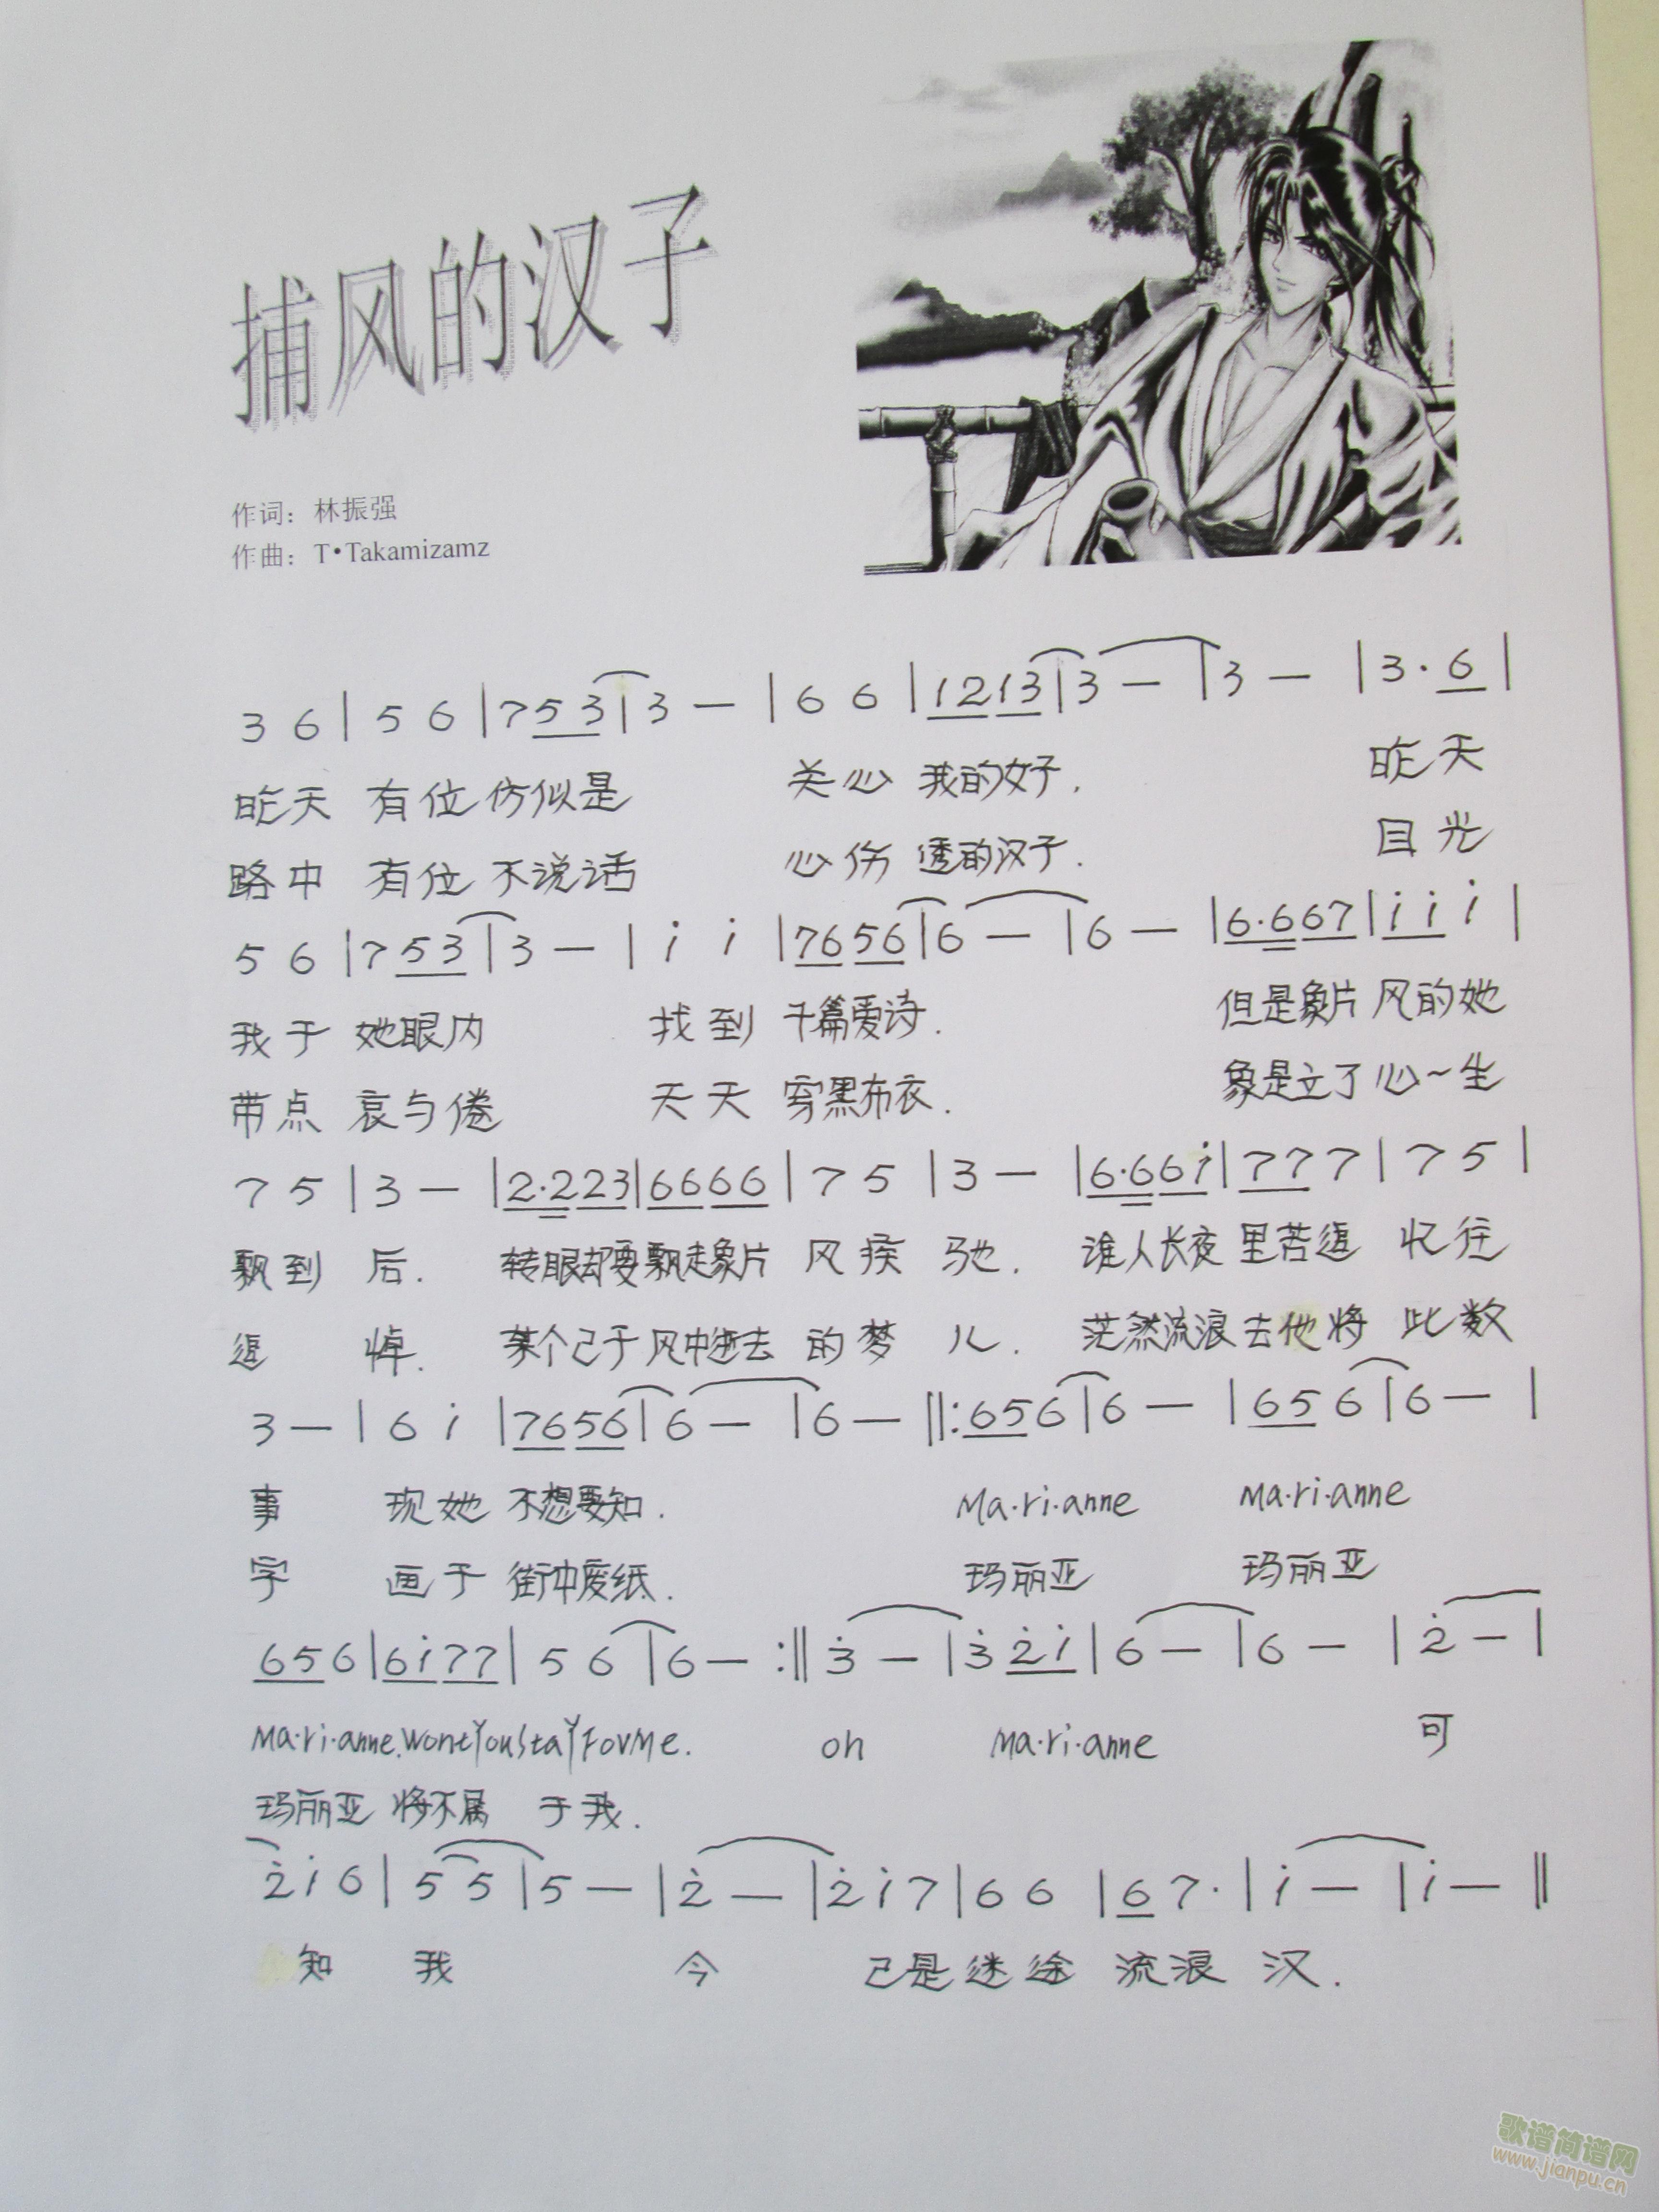 捕风的汉子
作词：林振强
作曲：T•Takamizamz
3 6 | 5 6 | 7 5 3 | 3 — | 6 6 | 1 2 1 3 | 3 — | 3 — | 3 · 6 |
昨天 有位仿似是 关心 我的女子. 昨天
路中 有位不说话 心伤 透的汉子. 目光
5 6 | 7 5 3 | 3 — | i i | 7 6 5 6 | 6 — | 6 — | 6 · 6 6 7 | i i i |
我于 她眼内 找到 千篇爱诗. 但是象片 风的她
带点 哀与倦 天天 穿黑布衣. 象是立了心一生
7 5 | 3 — | 2 · 2 2 3 | 6 6 6 6 | 7 5 | 3 — | 6 · 6 6 i | 7 7 7 | 7 5 |
飘到 后. 转眼却要飘走象片 风疾 驰. 谁人长夜里苦追 忆往
追 悼. 某个已于风中逝去 的梦 儿. 茫然流浪去他将 此数
3 — | 6 i | 7 6 5 6 | 6 — | 6 — ‖: 6 5 6 | 6 — | 6 5 6 | 6 — |
事 现她 不想要知. Ma·ri·anne Ma·ri·anne
字 画于 街中废纸. 玛丽亚 玛丽亚
6 5 6 | 6 i 7 7 | 5 6 | 6 — :‖ 3̇ — | 3̇ 2̇ i | 6 — | 6 — | 2̇ — |
Ma·ri·anne.WontYouStaYForMe. oh Ma·ri·anne 可
玛丽亚 将不属 于我.
2̇ i 6 | 5 5 | 5 — | 2̇ — | 2̇ i 7 | 6 6 | 6 7 · | i — | i — ‖
知 我 今 已是迷途 流浪 汉.
歌谱简谱网
www.jianpu.cn